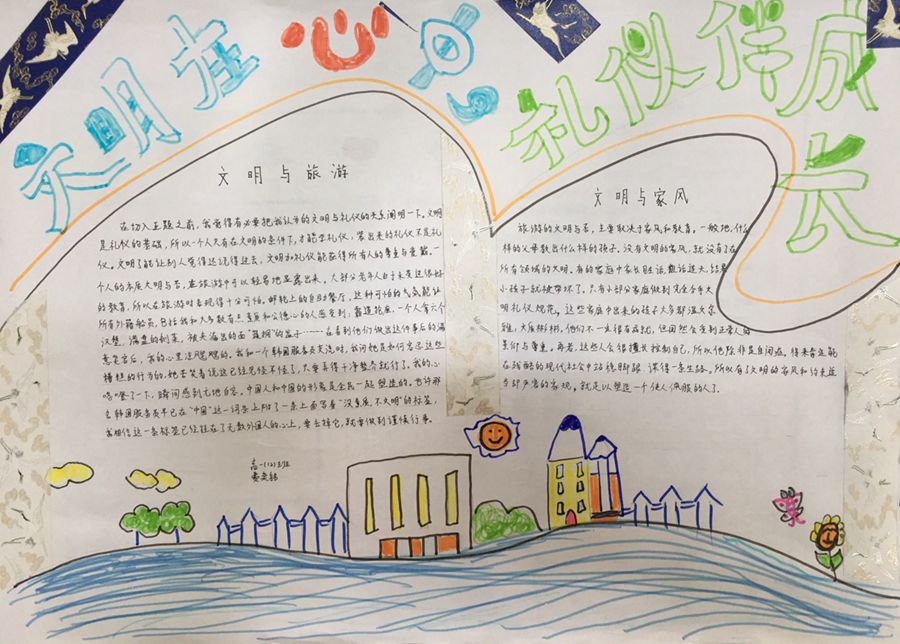 文明在心
礼仪伴成长
文明与旅游
在切入主题之前，我觉得有必要把我认为的文明与礼仪的关系阐明一下。文明
是礼仪的基础，所以一个人只有在文明的条件下，才能学礼仪，装出来的礼仪不是礼
仪。文明了能让别人觉得这说得过去，文明加礼仪能获得所有人的尊重与爱戴。一
个人的素质文明与否，在旅游中可以轻易地显露出来。大部分老年人由于未受过很好
的教育，所以在旅游时表现得十分可怕。邮轮上的自助餐厅，这种可怕的气氛能让
所有外籍船员，包括我和大多数有点素质和公德心的人感受到；霸道抢座，一个人拿六个
汉堡，满盘的刺菜，被夹溢出的
在看到他们做出这件事后的满
意笑容后，我的心里还愕愕的。我和一个韩国服务员交流时，我问她是如何容忍这些
糟糕的行为的，她苦笑着说这已经见怪不怪了，大家弄得干净整齐就行了。我的心
咯噔了一下，瞬间感到尤地自容。中国人和中国的形象是全民一起塑造的，也许那
名韩国服务员早已在“中国”这一词条上附了一条上面写着“没素质，不文明”的标签，
我相信这一条标签已经挂在了无数外国人的心上，要去掉它，就要做到谨慎行事。
高一(12)班
文明与家风
旅游的文明与否，主要取决于家风和教育。一般地，什么
样的父母教出什么样的孩子，没有文明的家风，就没有了在
所有领域的文明。有的家庭中家长脏话、粗话连天，结果
小孩子就被带坏了，只有小部分家庭做到完完全全文
明礼仪规范。这些家庭中出来的孩子大多都温文尔
雅，大度彬彬，他们不一定很有成就，但固然会受到正常人的
景仰与尊重。再者，这些人会很擅长控制自己，所以他除非是自闭症，得来肯定能
在残酷的现代社会中站稳脚跟，谋得一条生路。所以有了文明的家风和约束并
与却严岩的表现，就足以塑造一个使人佩服的人了。